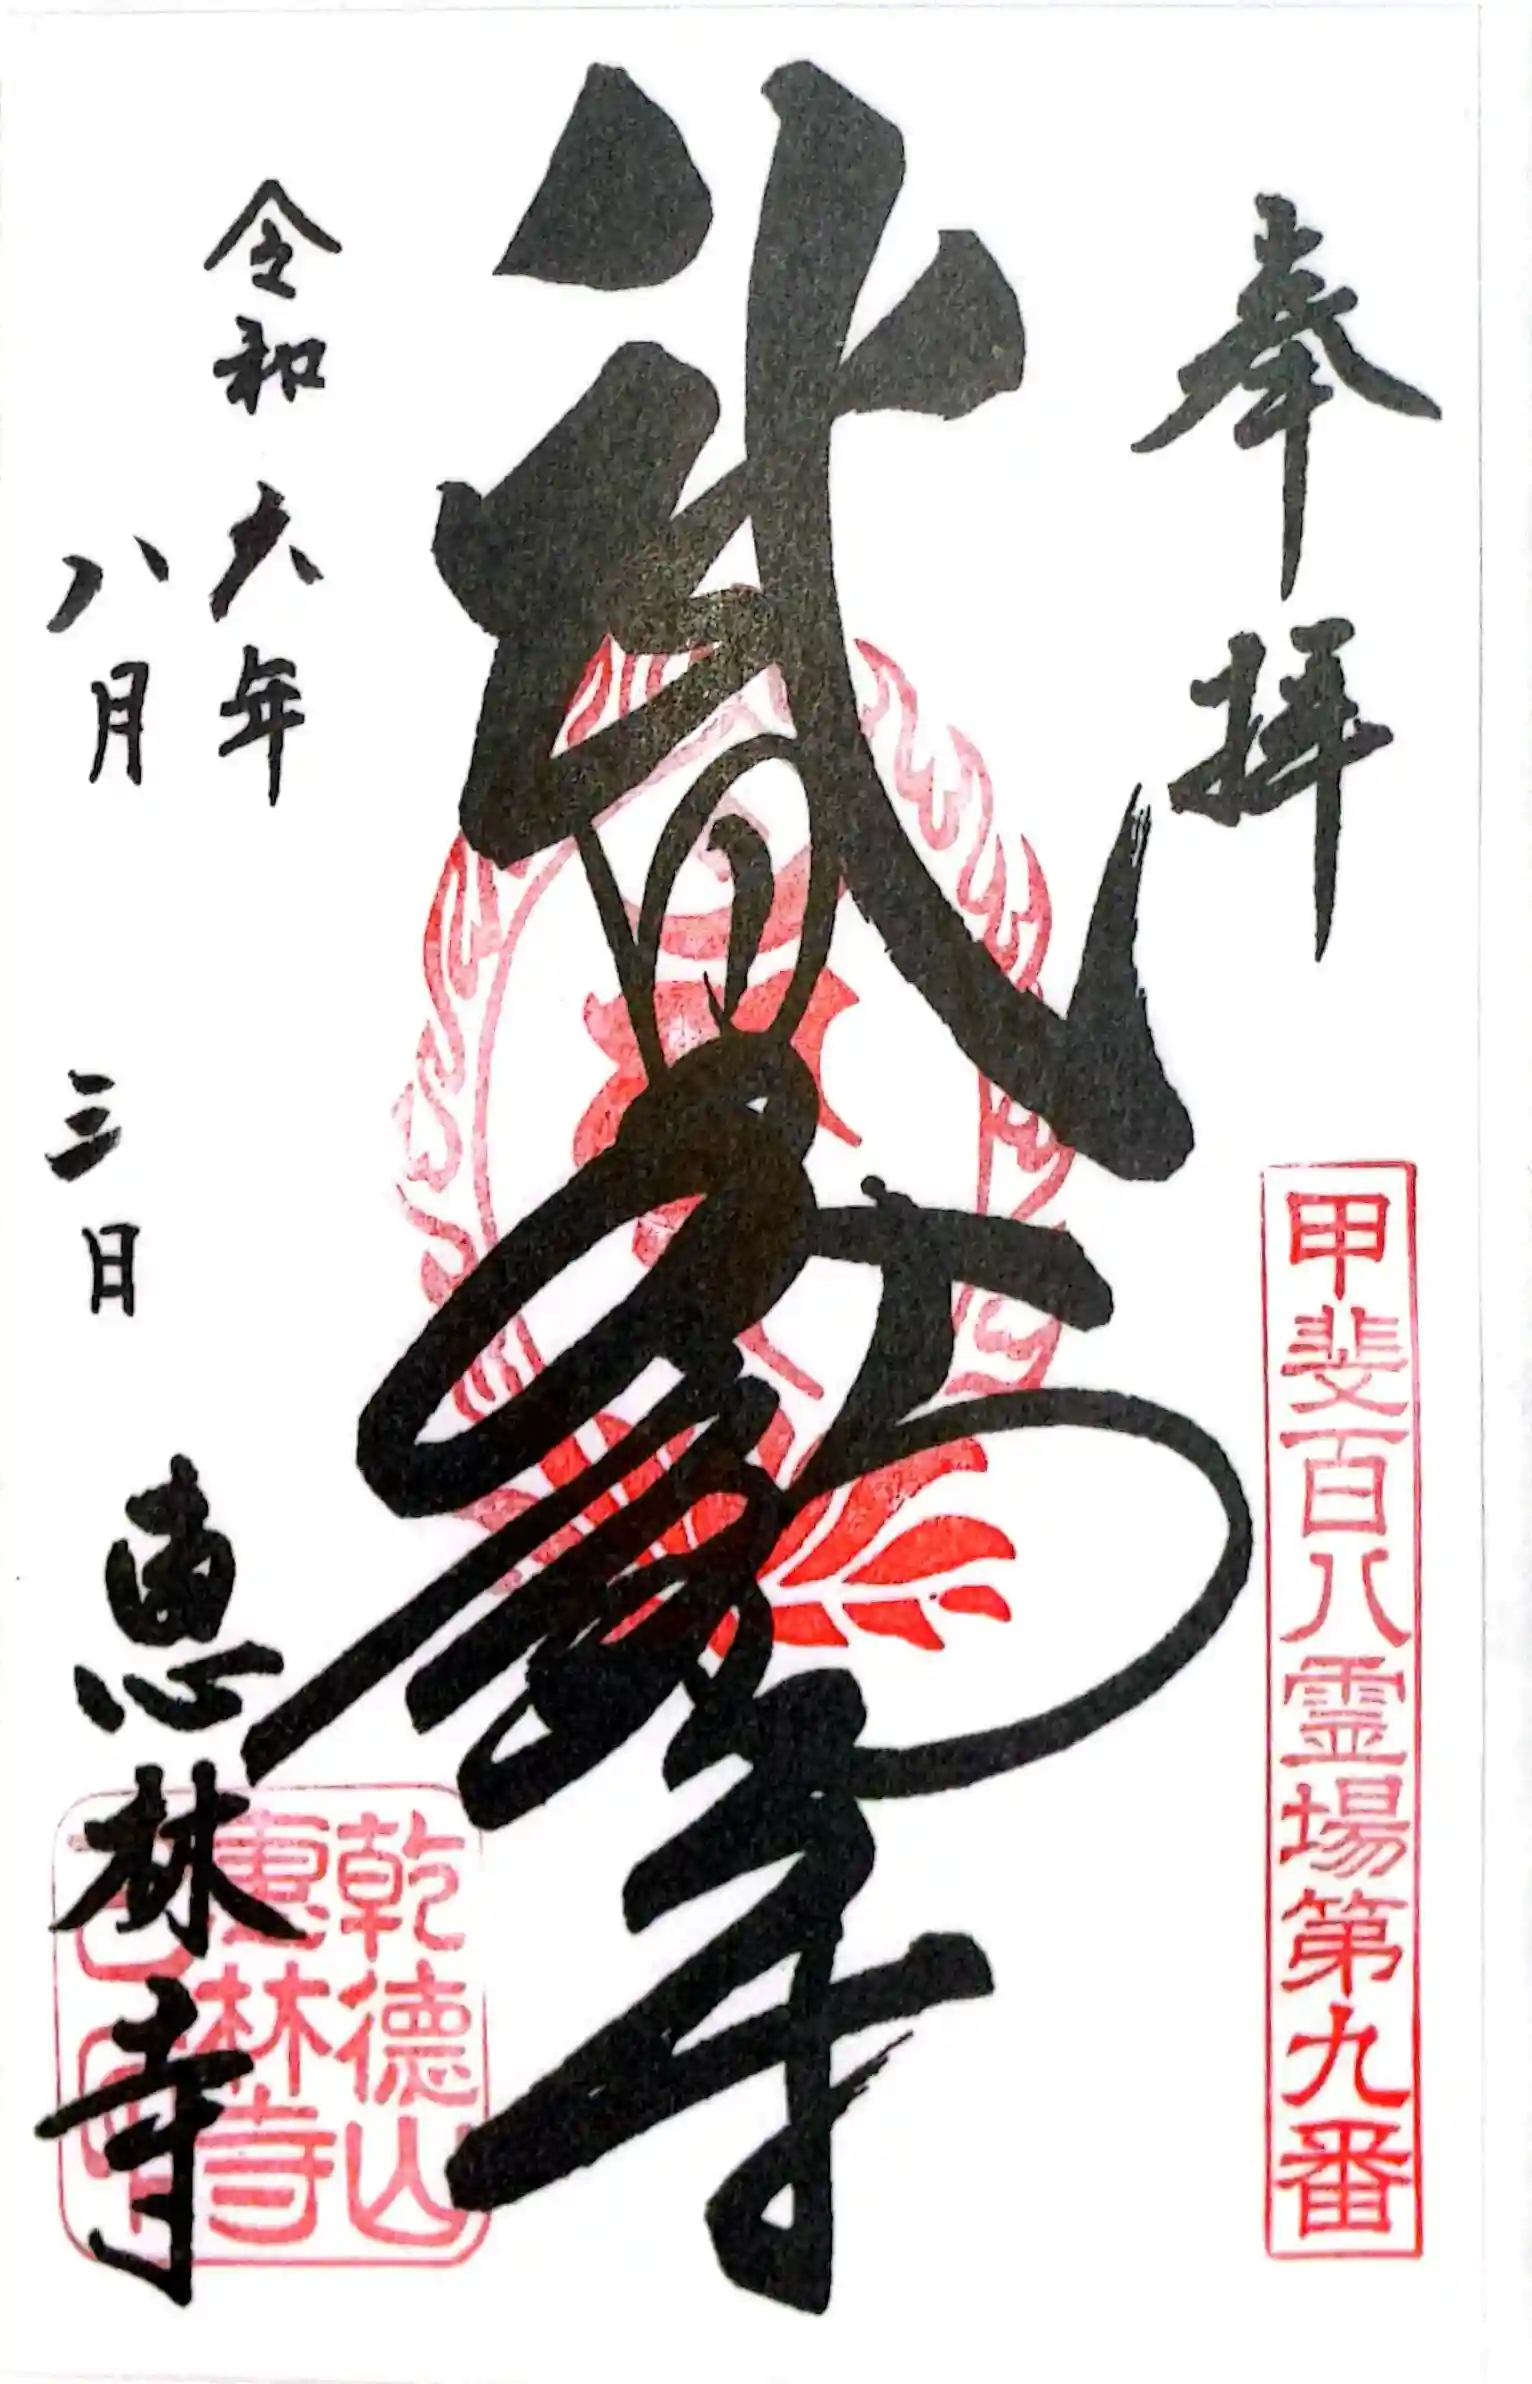 奉拝
甲斐百八霊場第九番
武田不動尊
令和六年
八月三日
恵林寺
乾徳山
恵林寺